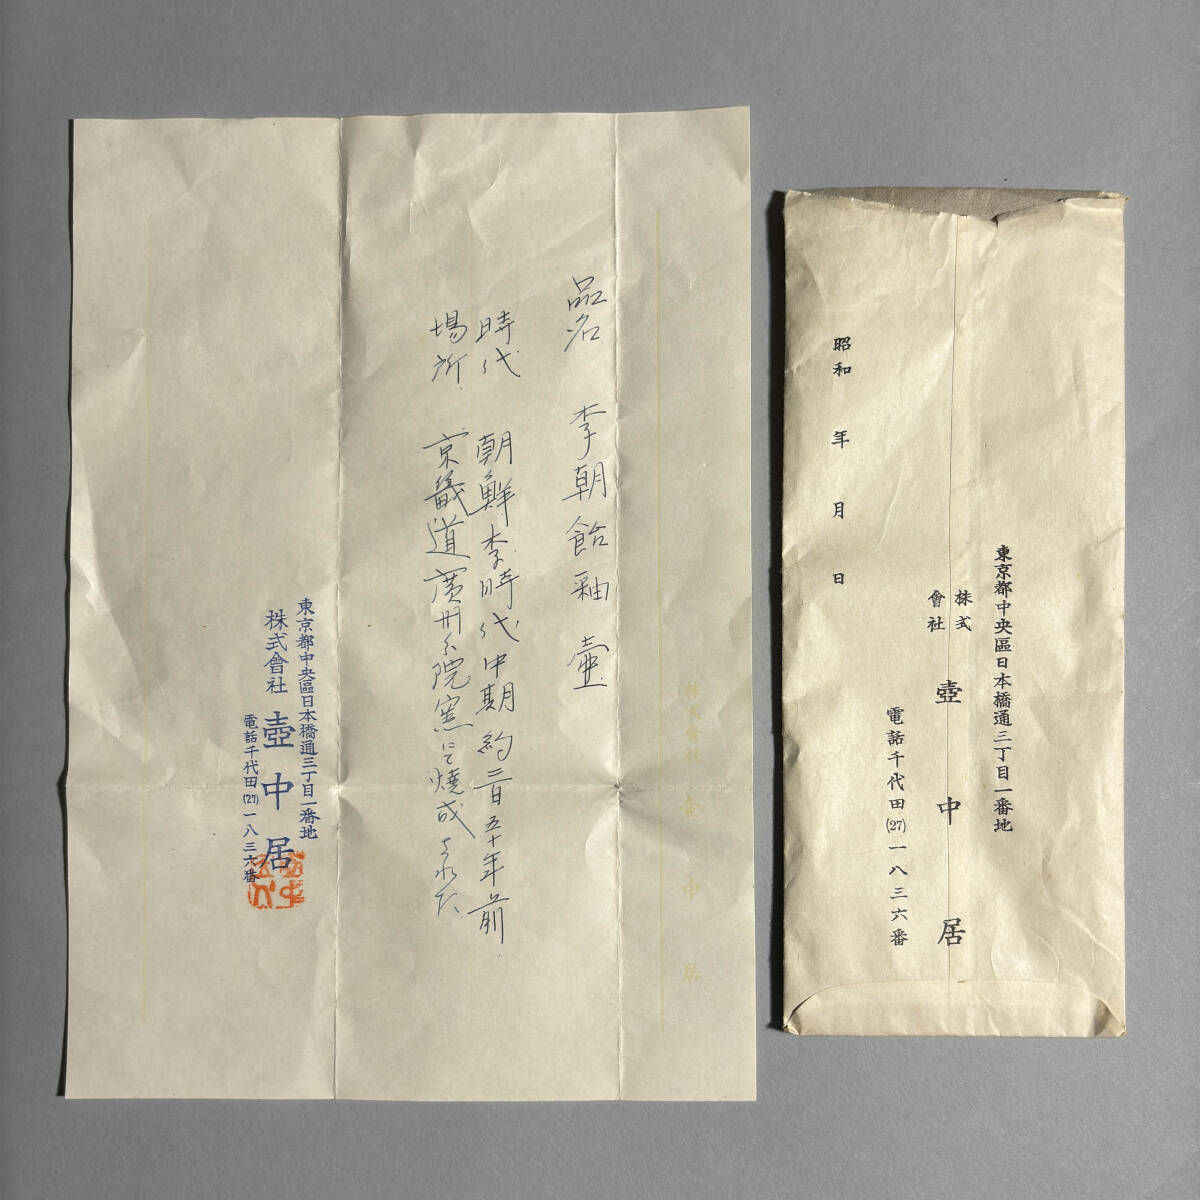 品名 李朝飴釉壷
時代 朝鮮李時代中期約三百五十年前
場所 京畿道廣州分院窯にて燒成された
東京都中央區日本橋通三丁目一番地
株式會社 壺中居
電話千代田(27)一八三六番
株式會社 壺中居
東京都中央區日本橋通三丁目一番地
株式會社 壺中居
電話千代田(27)一八三六番
昭和 年 月 日